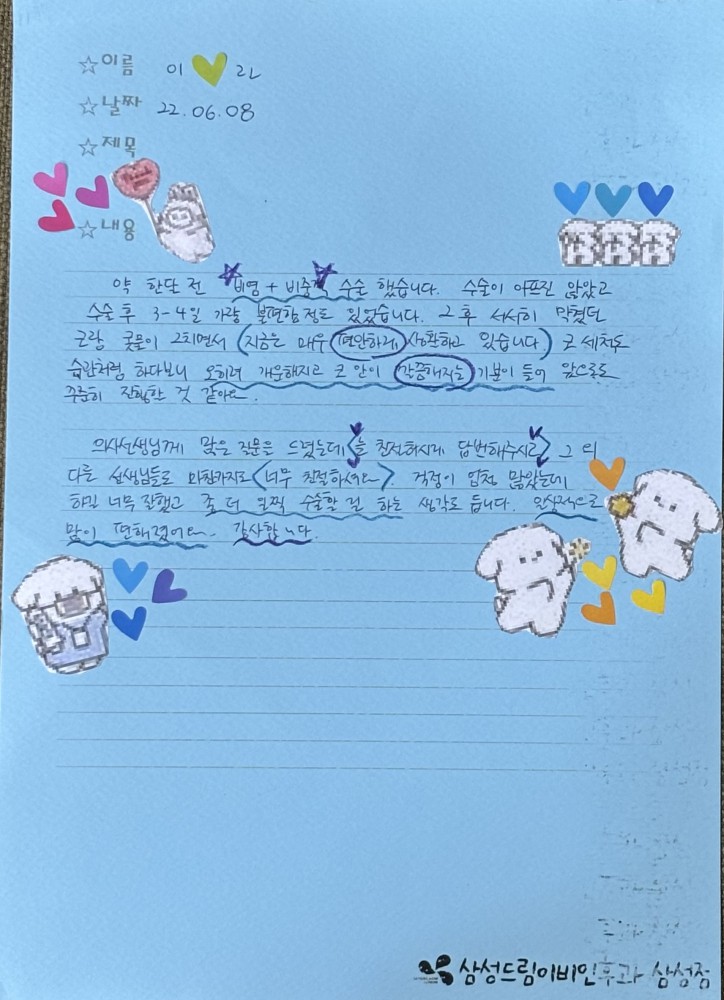 ☆이름 이 라
☆날짜 22.06.08
☆제목
☆내용
약 한달 전 비염 + 비중격 수술 했습니다. 수술이 아프진 않았고
수술 후 3-4일 가량 불편함 정도 있었습니다. 그 후 서서히 막혔던
코랑 콧물이 그치면서 (지금은 매우 편안하게 생활하고 있습니다) 코 세척도
습관처럼 하다보니 오히려 개운해지고 코 안이 깔끔해지는 기분이 들어 앞으로도
꾸준히 진행할 것 같아요.
의사선생님께 많은 질문을 드렸는데 <늘 친절하시게 답변해주시고> 그 외
다른 선생님들도 마찬가지로 <너무 친절하셔요>. 걱정이 엄청 많았는데
하길 너무 잘했고 좀 더 일찍 수술할 걸 하는 생각도 듭니다. 일상적으로
많이 편해졌어요~ 감사합니다.
삼성드림이비인후과 삼성점